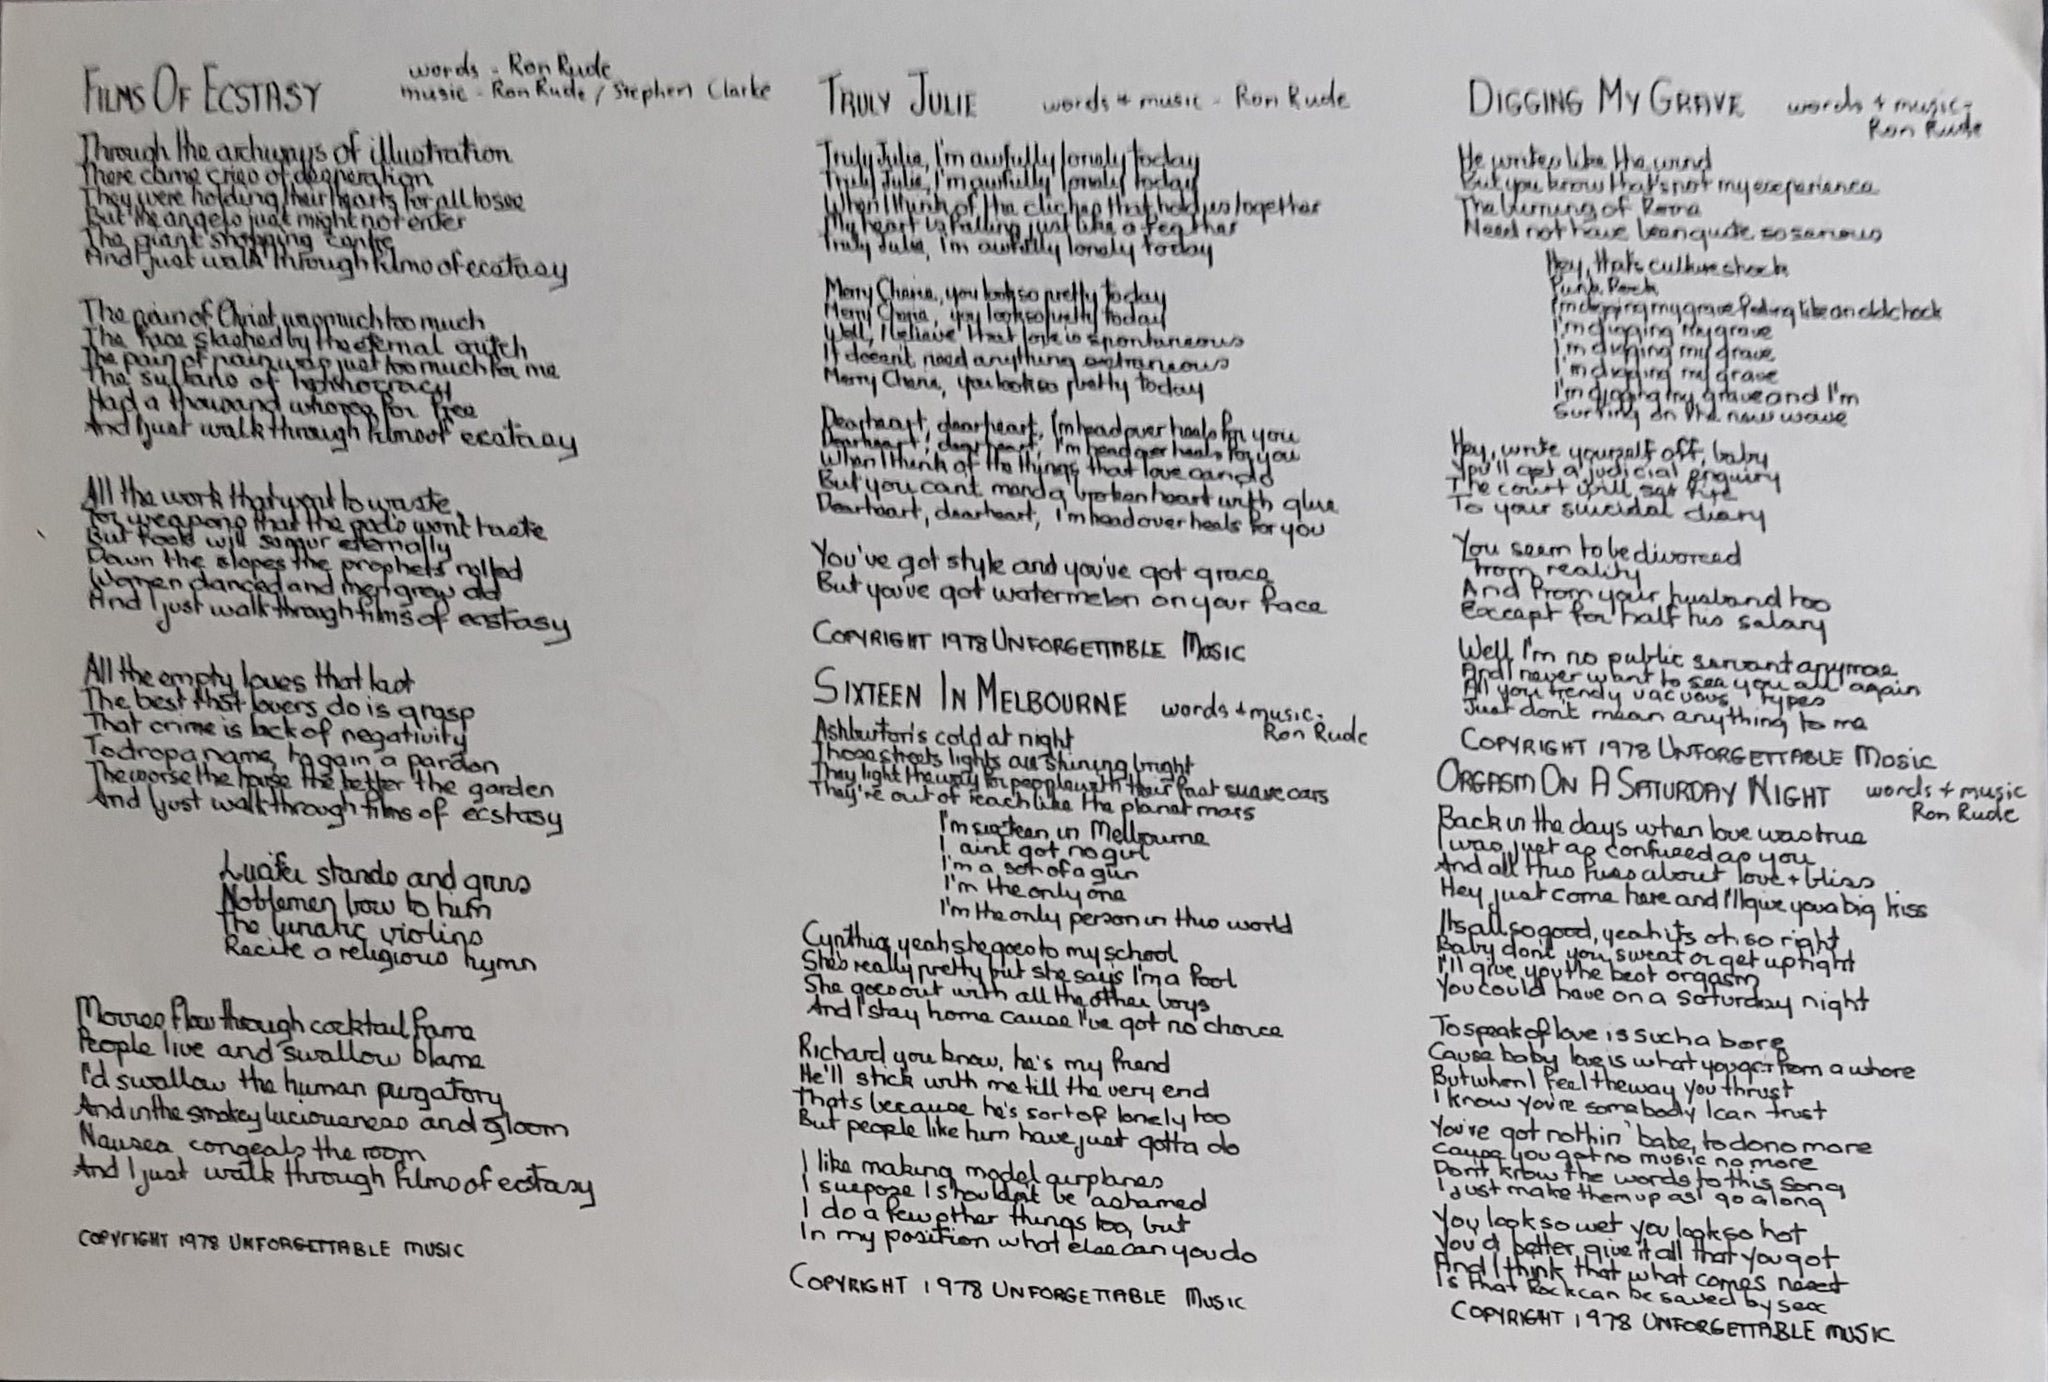 FILMS OF ECSTASY
words - Ron Rude
music - Ron Rude / Stephen Clarke
Through the archways of illustration
There came cries of desperation
They were holding their hearts for all to see
But the angels just might not enter
The giant shopping centre
And I just walk through films of ecstasy
The pain of Christ was much too much
The face slashed by the eternal crutch
The pain of pain was just too much for me
The sultans of
Had a thousand whores for free
And I just walk through films of ecstasy
All the work that went to waste
For weapons that the gods wont taste
But fools will eternally
Down the slopes the prophets rolled
Women danced and men grew old
And I just walk through films of ecstasy
All the empty loves that last
The best that lovers do is grasp
That crime is lack of negativity
To drop a name, to gain a pardon
The worse the house the better the garden
And I just walk through films of ecstasy
Lucifer stands and grins
Noblemen bow to him
The lunatic violins
Recite a religious hymn
Movies flow through cocktail fame
People live and swallow blame
I'd swallow the human purgatory
And in the smokey luciousness and gloom
Nausea congeals the room
And I just walk through films of ecstasy
COPYRIGHT 1978 UNFORGETTABLE MUSIC
TRULY JULIE
words + music - Ron Rude
Truly Julie, I'm awfully lonely today
Truly Julie, I'm awfully lonely today
When I think of the cliches that hold us together
My heart is falling just like a feather
Truly Julie, I'm awfully lonely today
Merry Cherie, you look so pretty today
Merry Cherie, you look so pretty today
Well, I believe that love is spontaneous
It doesn't need anything extraneous
Merry Cherie, you look so pretty today
Dearheart, dearheart, I'm head over heals for you
Dearheart, dearheart, I'm head over heals for you
When I think of the things that love can do
But you cant mend a broken heart with glue
Dearheart, dearheart, I'm head over heals for you
You've got style and you've got grace
But you've got watermelon on your face
COPYRIGHT 1978 UNFORGETTABLE MUSIC
SIXTEEN IN MELBOURNE
words + music -
Ron Rude
Ashburton's cold at night
Those streets lights all shining bright
They light the way for people with their fast suave cars
They're out of reach like the planet mars
I'm sixteen in Melbourne
I aint got no girl
I'm a son of a gun
I'm the only one
I'm the only person in this world
Cynthia, yeah she goes to my school
She's really pretty but she says I'm a fool
She goes out with all the other boys
And I stay home cause I've got no choice
Richard you know, he's my friend
He'll stick with me till the very end
Thats because he's sort of lonely too
But people like him have just gotta do
I like making model airplanes
I supose I shouldn't be ashamed
I do a few other things too, but
In my position what else can you do
COPYRIGHT 1978 UNFORGETTABLE MUSIC
DIGGING MY GRAVE
words + music -
Ron Rude
He writes like the wind
But you know that's not my experience
The burning of Rome
Need not have been quite so serious
Hey, thats culture shock
Punk Rock
I'm digging my grave feeling like an old chook
I'm digging my grave
I'm digging my grave
I'm digging my grave
I'm digging my grave and I'm
Surfing on the new wave
Hey, write yourself off, baby
You'll get a judicial enquiry
The court will set fire
To your suicidal diary
You seem to be divorced
from reality
And from your husband too
Except for half his salary
Well I'm no public servant anymore
And I never want to see you all again
All you trendy vacuous types
Just don't mean anything to me
COPYRIGHT 1978 UNFORGETTABLE MUSIC
ORGASM ON A SATURDAY NIGHT
words + music
Ron Rude
Back in the days when love was true
I was just as confused as you
And all this fuss about love + bliss
Hey just come here and I'll give you a big kiss
Its all so good, yeah its oh so right
Baby don't you sweat or get uptight
I'll give you the best orgasm
You could have on a saturday night
To speak of love is such a bore
Cause baby love is what you get from a whore
But when I feel the way you thrust
I know you're somebody I can trust
You've got nothin' babe, to do no more
Cause you got no music no more
Don't know the words to this song
I just make them up as I go along
You look so wet you look so hot
You'd better give it all that you got
And I think that what comes next
Is that Rock can be saved by sex
COPYRIGHT 1978 UNFORGETTABLE MUSIC